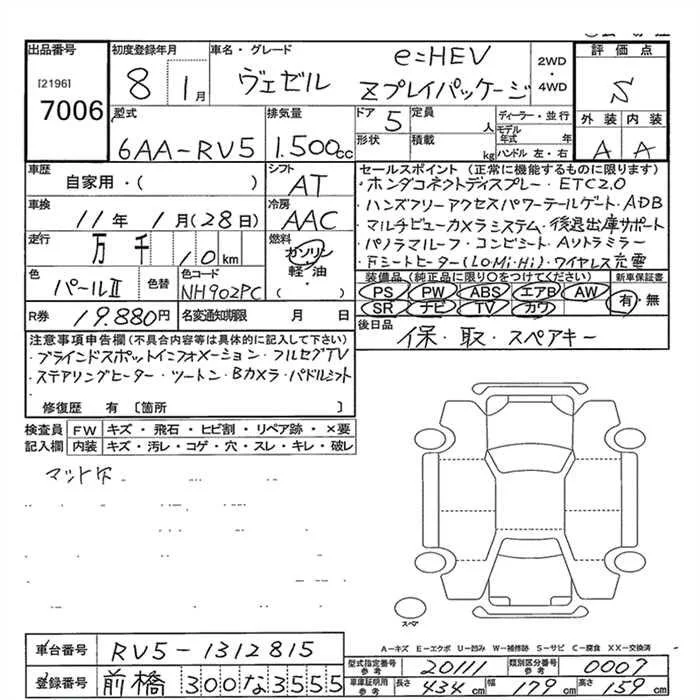 出品番号
[2196]
7006
初度登録年月
8 1月
車名・グレード
ヴェゼル
e:HEV
Zプレイパッケージ
2WD
・
4WD
評価点
S
外装 内装
A A
型式
6AA-RV5
排気量
1.500cc
ドア 5
定員 人
形状
積載 kg
ディーラー・並行
モデル年式 年
ハンドル 左・右
車歴
自家用・( )
シフト
AT
車検
11年 1月(28日)
冷房
AAC
走行
万 千 10 km
燃料
ガソリン
軽・油
・( )
色
パールⅡ
色替
色コード
NH902PC
R券 19.880円
名変通知期限 月 日
セールスポイント(正常に機能するものに限ります)
・ホンダコネクトディスプレー・ETC2.0
・ハンズフリーアクセスパワーテールゲート・ADB
・マルチビューカメラシステム・後退出庫サポート
・パノラマルーフ・コンビシート・Aソトラミラー
・Fシートヒーター(LO・Mi・Hi)・ワイヤレス充電
装備品(純正品に限り○をつけてください)
PS PW ABS エアB AW
SR ナビ TV カワ
新車保証書
有・無
後日品
保・取・スペアキー
注意事項申告欄(不具合内容等は具体的に記入して下さい)
・ブラインドスポットインフォメーション・フルセグTV
・ステアリングヒーター・ツートン・Bカメラ・パドルシフト
修復歴 有〔箇所 〕
検査員記入欄
FW キズ・飛石・ヒビ割・リペア跡・×要
内装 キズ・汚レ・コゲ・穴・スレ・キレ・破レ
マット欠
スペア
A－キズ E－エクボ U－凹み W－補修跡 S－サビ C－腐食 XX－交換済
車台番号 RV5-1312815
登録番号 前橋 300な3555
型式指定番号 参考 20111
類別区分番号 参考 0007
車庫証明用 参考 長さ 434cm 幅 179cm 高さ 159cm